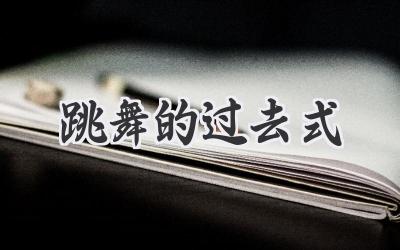 跳舞的过去式